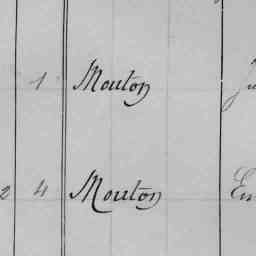 1 Mouton
2 4 Mouton